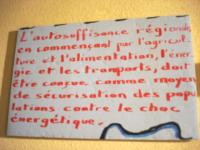 L'autosuffisance régionale,
en commençant par l'agricul-
ture et l'alimentation, l'éner-
gie et les transports, doit
être conçue comme moyen
de sécurisation des popu
lations contre le choc
énergétique.